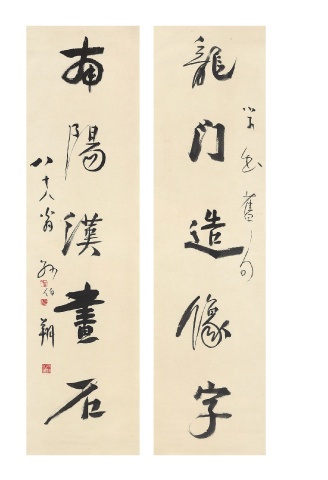 龍门造像字
舊句
南陽漢畫石
八十八翁 孫伯翔